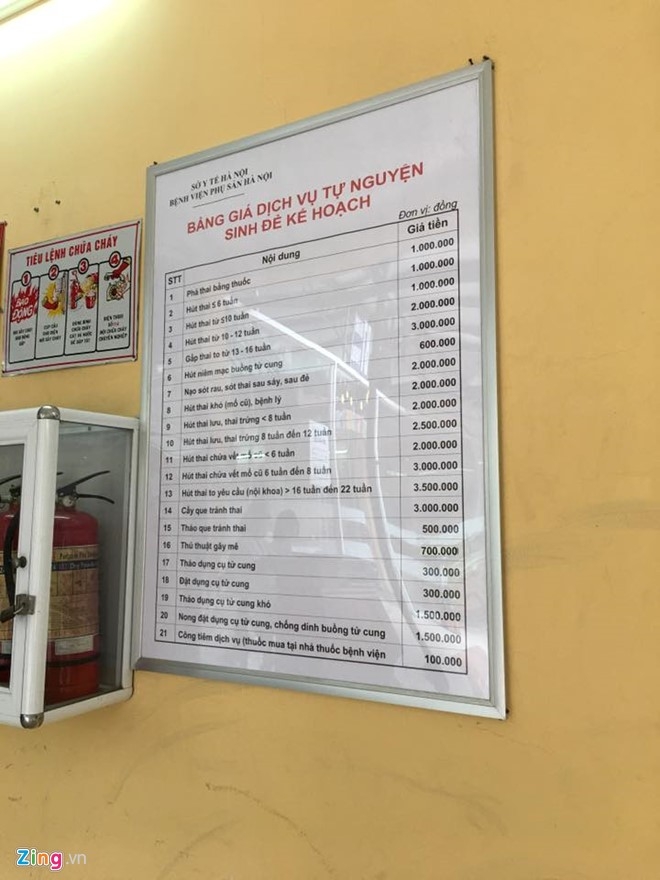 SỞ Y TẾ HÀ NỘI
BỆNH VIỆN PHỤ SẢN HÀ NỘI
BẢNG GIÁ DỊCH VỤ TỰ NGUYỆN
SINH ĐẺ KẾ HOẠCH
Đơn vị: đồng
STT Nội dung Giá tiền
1 Phá thai bằng thuốc 1.000.000
2 Hút thai ≤ 6 tuần 1.000.000
3 Hút thai từ ≤10 tuần 1.000.000
4 Hút thai từ 10 - 12 tuần 2.000.000
5 Gắp thai to từ 13 - 16 tuần 3.000.000
6 Hút niêm mạc buồng tử cung 600.000
7 Nạo sót rau, sót thai sau sảy, sau đẻ 2.000.000
8 Hút thai khó (mổ cũ), bệnh lý 2.000.000
9 Hút thai lưu, thai trứng < 8 tuần 2.500.000
10 Hút thai lưu, thai trứng 8 tuần đến 12 tuần 2.000.000
11 Hút thai chửa vết < 6 tuần 3.000.000
12 Hút thai chửa vết mổ cũ 6 tuần đến 8 tuần 3.500.000
13 Hút thai to yêu cầu (nội khoa) > 16 tuần đến 22 tuần 3.000.000
14 Cấy que tránh thai 500.000
15 Tháo que tránh thai 700.000
16 Thủ thuật gây mê 300.000
17 Tháo dụng cụ tử cung 300.000
18 Đặt dụng cụ tử cung 1.500.000
19 Tháo dụng cụ tử cung khó 1.500.000
20 Nong đặt dụng cụ tử cung, chống dính buồng tử cung 100.000
21 Công tiêm dịch vụ (thuốc mua tại nhà thuốc bệnh viện
TIÊU LỆNH CHỮA CHÁY
1 2 3 4
BÁO ĐỘNG
Zing.vn